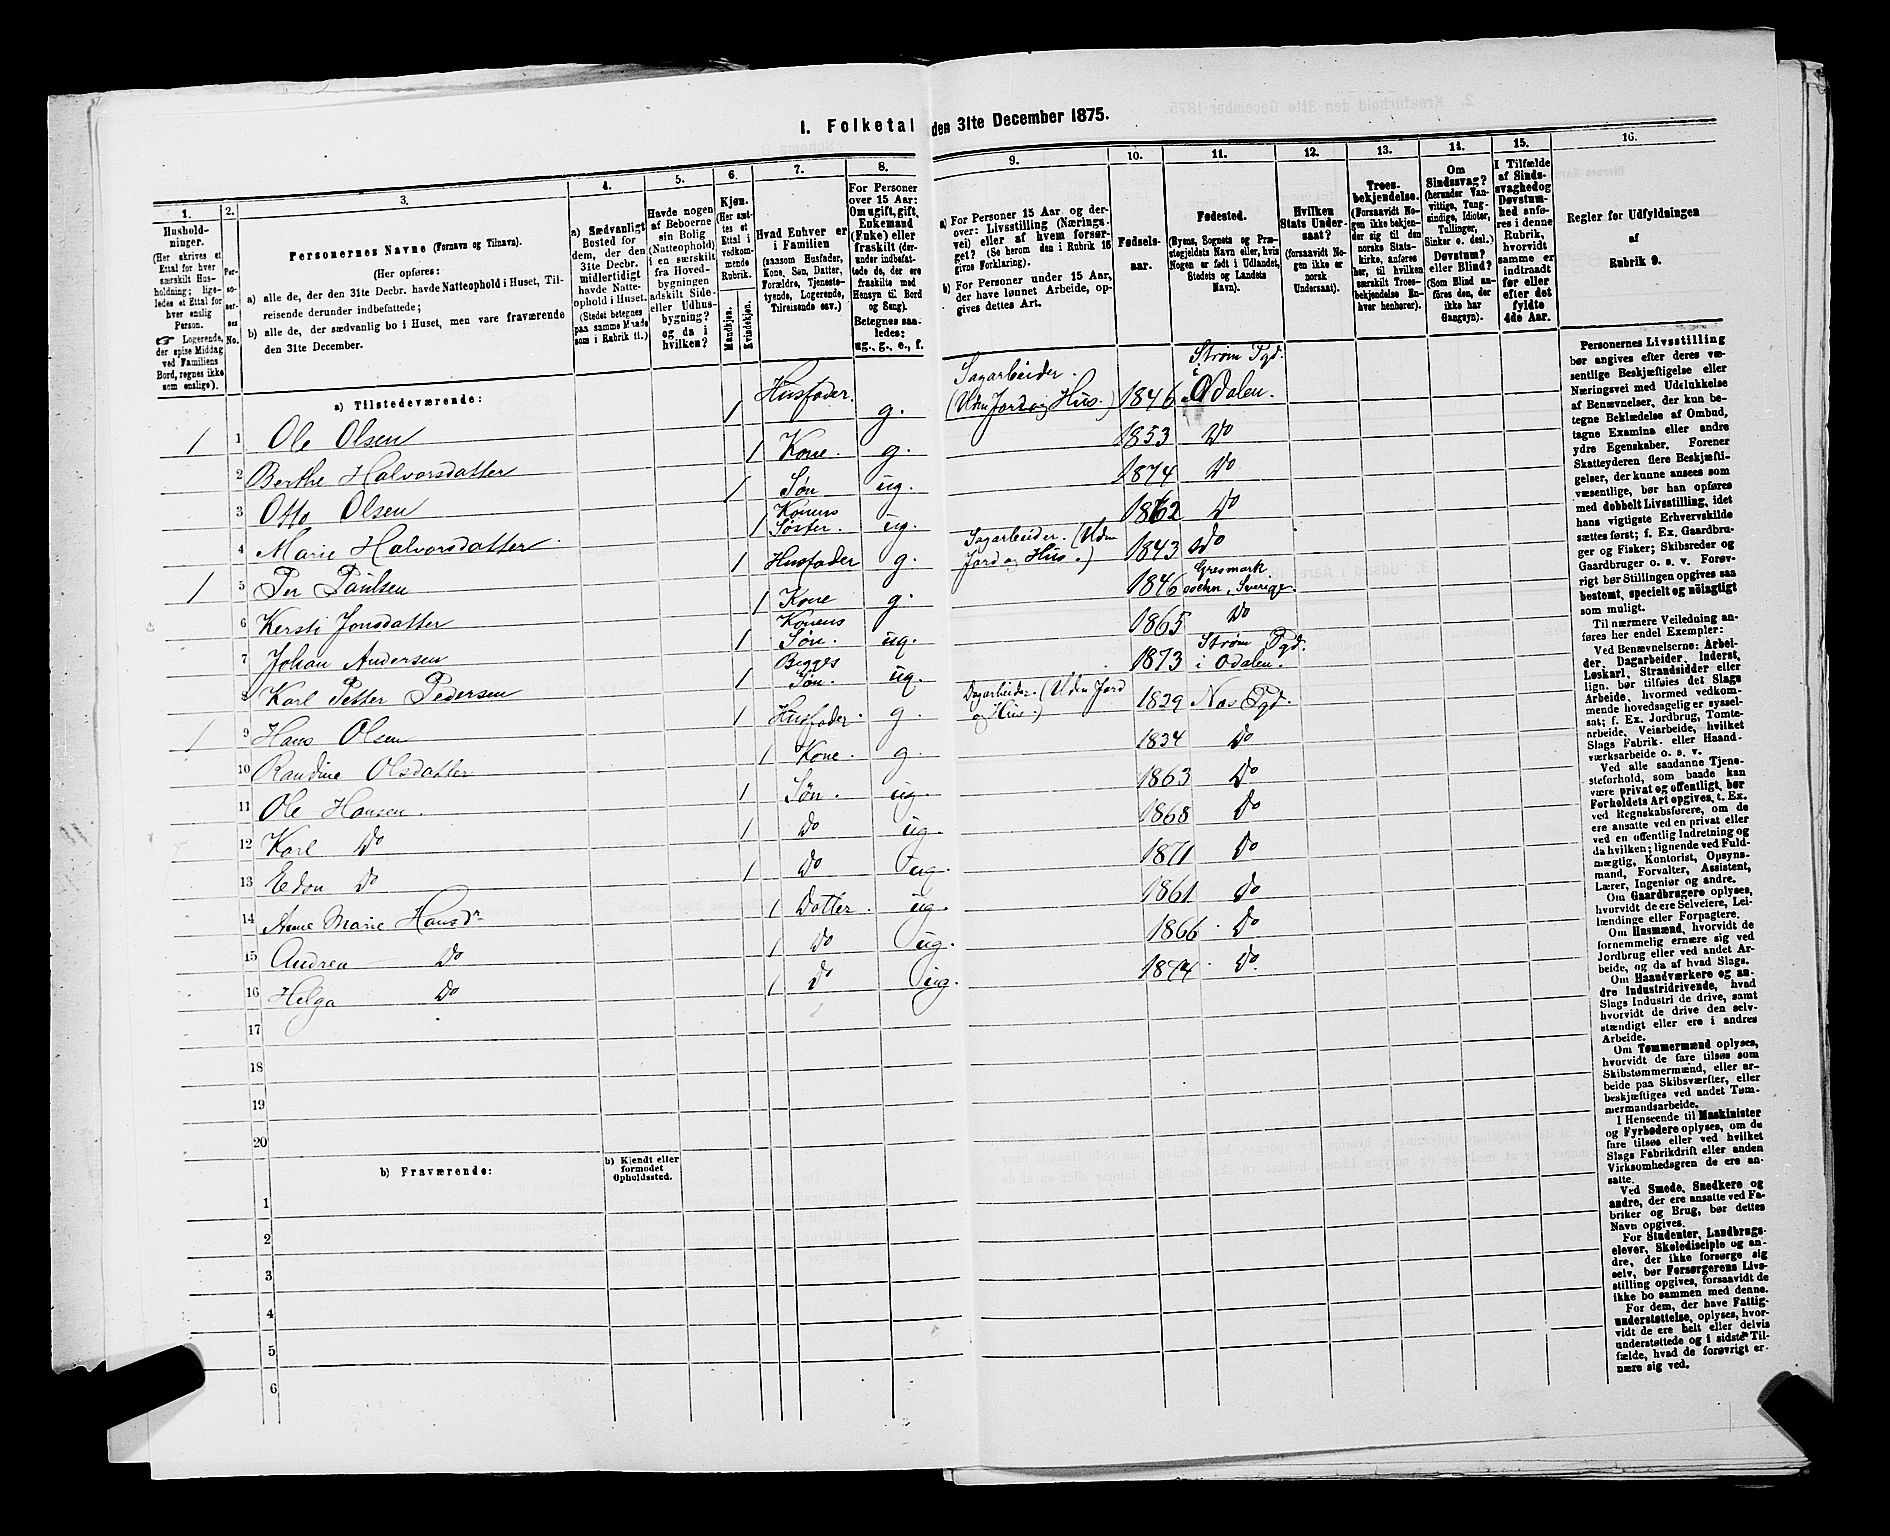 1. Folketal den 31te December 1875.
1. Husholdninger. (Her skrives et Ettal for hver særskilt Husholdning; ligeledes et Ettal for hver enslig Person. ☛ Logerende, der spise Middag ved Familiens Bord, regnes ikke som enslige).
2. Personernes No.
3. Personernes Navne (Fornavn og Tilnavn). (Her opføres: a) alle de, der den 31te Decbr. havde Natteophold i Huset, Tilreisende derunder indbefattede; b) alle de, der sædvanlig bo i Huset, men vare fraværende den 31te December.
4. a) Sædvanligt Bosted for dem, der den 31te Decbr. midlertidigt havde Natteophold i Huset. (Stedet betegnes paa samme Maade som i Rubrik 11.)
5. Havde nogen af Beboerne sin Bolig (Natteophold) i en særskilt fra Hovedbygningen adskilt Side- eller Udhusbygning? og da i hvilken?
6. Kjøn. (Her sættes et Ettal i vedkommende Rubrik. Mandkjøn. Kvindekjøn.
7. Hvad Enhver er i Familien (saasom Husfader, Kone, Søn, Datter, Forældre, Tjenestetyende, Logerende, Tilreisende osv.)
8. For Personer over 15 Aar: Om ugift, gift, Enkemand (Enke) eller fraskilt (derunder indbefattede de, der ere fraskilte med Hensyn til Bord og Seng). Betegnes saaledes: ug., g., e., f.
9. a) For Personer 15 Aar og derover: Livsstilling (Næringsvei) eller af hvem forsørget? (Se herom den i Rubrik 16 givne Forklaring). b) For Personer under 15 Aar, der have lønnet Arbeide, opgives dettes Art.
10. Fødselsaar.
11. Fødested. (Byens, Sognets og Præstegjeldets Navn eller, hvis Nogen er født i Udlandet, Stedets og Landets Navn).
12. Hvilken Stats Undersaat? (forsaavidt Nogen ikke er norsk Undersaat).
13. Troesbekjendelse. (Forsaavidt Nogen ikke bekjender sig til den norske Statskirke, anføres her, til hvilken særskilt Troesbekjendelse Enhver henhører).
14. Om Sindssvag? (herunder Vanvittige, Tungsindige, Idioter, Tullinger, Sinker o. desl.) Døvstum? eller Blind? (Som Blind anføres den, der ikke har Gangsyn).
15. I Tilfælde af Sindssvaghed og Døvstumhed anføres i denne Rubrik, hvorvidt samme er indtraadt før eller efter det fyldte 4de Aar.
16. Regler for Udfyldningen af Rubrik 9.
a) Tilstedeværende:
1 1 Ole Olsen 1 Husfader. g. Sagarbeider. (Uden Jord og Hus.) 1846 Strøm Pgd. i Odalen.
2 Berthe Halvorsdatter 1 Kone. g. 1853 Do
3 Otto Olsen 1 Søn ug. 1874 Do
4 Marie Halvorsdatter 1 Konens Søster. ug. 1862 Do
1 5 Per Paulsen 1 Husfader g. Sagarbeider. (Uden Jord og Hus.) 1843 Do
6 Kersti Jonsdatter 1 Kone g. 1846 Gresmark Sverige.
7 Johan Andersen 1 Konens Søn. ug. 1865 Do
8 Karl Petter Pedersen 1 Begges Søn. ug. 1873 Strøm Pgd. i Odalen.
1 9 Hans Olsen 1 Husfader. g. Dagarbeider. (Uden Jord og Hus.) 1829 Nes Pgd.
10 Randine Olsdatter 1 Kone. g 1834 Do
11 Ole Hansen. 1 Søn. ug. 1863 Do
12 Karl Do 1 Do ug. 1868 Do
13 Edon Do 1 Do ug. 1871 Do
14 Anne Marie Hansdr 1 Datter. ug. 1861 Do
15 Andrea Do 1 Do ug. 1866 Do
16 Helga Do 1 Do ug. 1874 Do.
17
18
19
20
b) Fraværende: b) Kjendt eller formodet Opholdssted.
1
2
3
4
5
6
Personernes Livsstilling
bør angives efter deres væ-
sentlige Beskjæftigelse eller
Næringsvei med Udelukkelse
af Benævnelser, der kun be-
tegne Beklædelse af Ombud,
tagne Examina eller andre
ydre Egenskaber. Forener
Skatteyderen flere Beskjæfti-
gelser, der kunne ansees som
væsentlige, bør han opføres
med dobbelt Livsstilling, idet
hans vigtigste Erhvervskilde
sættes først; f. Ex. Gaardbru-
ger og Fisker; Skibsreder og
Gaardbruger o. s. v. Forøv-
rigt bør Stillingen opgives saa
bestemt, specielt og nøiagtigt
som muligt.
Til nærmere Veiledning an-
føres her endel Exempler:
Ved Benævnelserne: Arbei-
der, Dagarbeider, Inderst,
Løskarl, Strandsidder eller
lign. bør tilføies det Slags
Arbeide, hvormed vedkom-
mende hovedsagelig er syssel-
sat; f. Ex. Jordbrug, Tomte-
arbeide, Veiarbeide, hvilket
Slags Fabrik- eller Haand-
værksarbeide o. s. v.
Ved alle saadanne Tjene-
steforhold, som baade kan
være privat og offentligt, bør
Forholdets Art opgives, t. Ex.
ved Regnskabsførere, om de
ere ansatte ved en privat eller
ved en offentlig Indretning og
da hvilken; lignende ved Fuld-
mægtig, Kontorist, Opsyns-
mand, Forvalter, Assistent,
Lærer, Ingeniør og andre.
Om Gaardbrugere oplyses,
hvorvidt de ere Selveiere, Lei-
lændinge eller Forpagtere.
Om Husmænd, hvorvidt de
fornemmelig ernære sig ved
Jordbrug eller ved andet Ar-
beide, og da af hvad Slags.
Om Haandværkere og an-
dre Industridrivende, hvad
Slags Industri de drive, samt
hvorvidt de drive den selv-
stændigt eller ere i andres
Arbeide.
Om Tømmermænd oplyses,
hvorvidt de fare tilsøs som
Skibstømmermænd, eller ar-
beide paa Skibsværfter, eller
beskjæftiges ved andet Tøm-
mermandsarbeide.
I Henseende til Maskinister
og Fyrbødere oplyses, om de
fare tilsøs eller ved hvilket
Slags Fabrikdrift eller anden
Virksomhedsgren de ere an-
satte.
Ved Smede, Snedkere og
andre, der ere ansatte ved Fa-
briker og Brug, bør dettes
Navn opgives.
For Studenter, Landbrugs-
elever, Skoledisciple og an-
dre, der ikke forsørge sig
selv, bør Forsørgerens Livs-
stilling opgives, forsaavidt de
ikke bo sammen med denne.
For dem, der have Fattig-
understøttelse, oplyses, hvor-
vidt de ere helt eller delvis
understøttede og i sidste Til-
fælde, hvad de forøvrigt er-
nære sig ved.